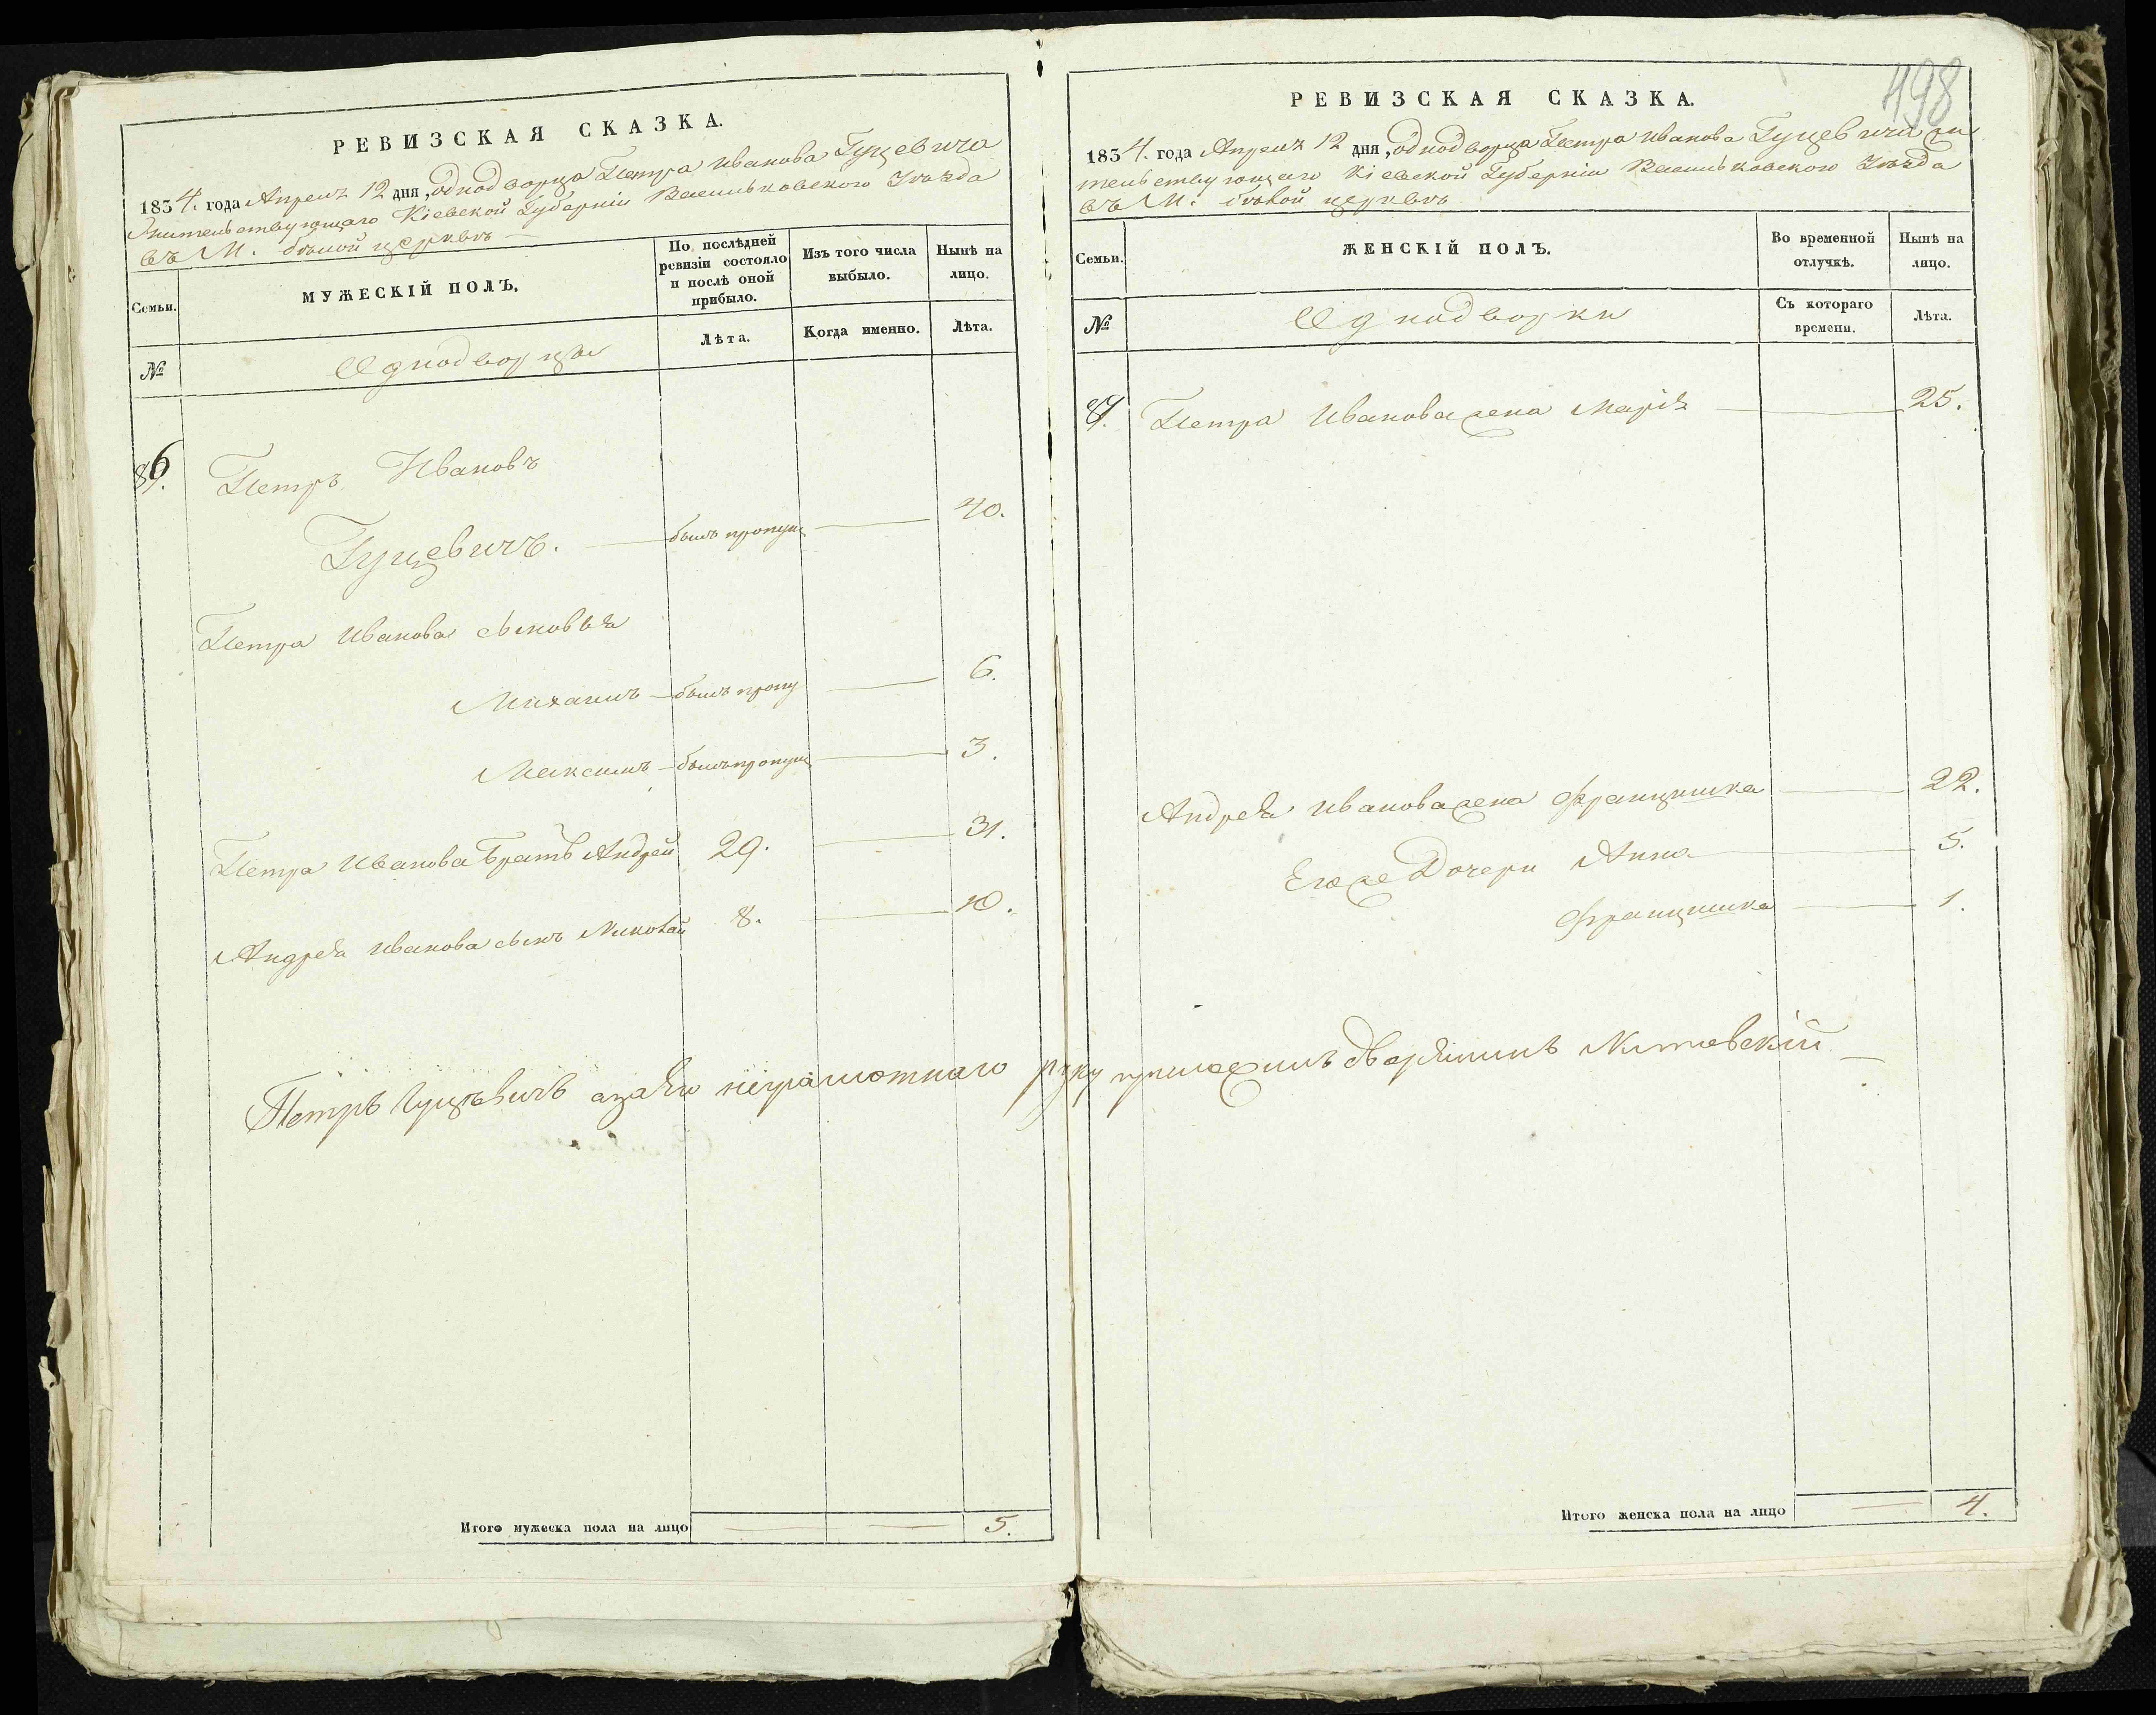 498
РЕВИЗСКАЯ СКАЗКА.
1834. года Апреля 12 дня, однодворца Петра Иванова Гуцевича
жительствующаго Кіевской Губерніи Васильковского Уѣзда
въ М. бѣлой церквѣ
Семьи.
МУЖЕСКІЙ ПОЛЪ.
По послѣдней ревизіи состояло и послѣ оной прибыло.
Изъ того числа выбыло.
Нынѣ на лицо.
№
Однодворцы
Лѣта.
Когда именно.
Лѣта.
Петръ Ивановъ
Гуцевичъ. былъ пропущ 40.
Петра Иванова сыновья
Михаилъ былъ пропу 6.
Максимъ былъ пропущ 3.
Петра Иванова братъ Андрей 29. 31.
Андрея Иванова сынъ Николай 8. 10.
Петръ Гуцѣвичъ азанго неграмотнаго руку приложилъ дворянинъ
Итого мужеска пола на лицо 5.
РЕВИЗСКАЯ СКАЗКА.
1834. года Апреля 12 дня, однодворца Петра Иванова Гуцевича жи
тельствующаго Кіевской Губерніи Васильковского Уѣзда
въ М: бѣлой церквѣ
Семьи.
ЖЕНСКІЙ ПОЛЪ.
Во временной отлучкѣ.
Нынѣ на лицо.
№
Однодворки
Съ котораго времени.
Лѣта.
Петра Иванова жена Марія 25.
Андрея Иванова жена Францишка 22.
Его же Дочери Анна 5.
Францишка 1.
Итого женска пола на лицо 4.